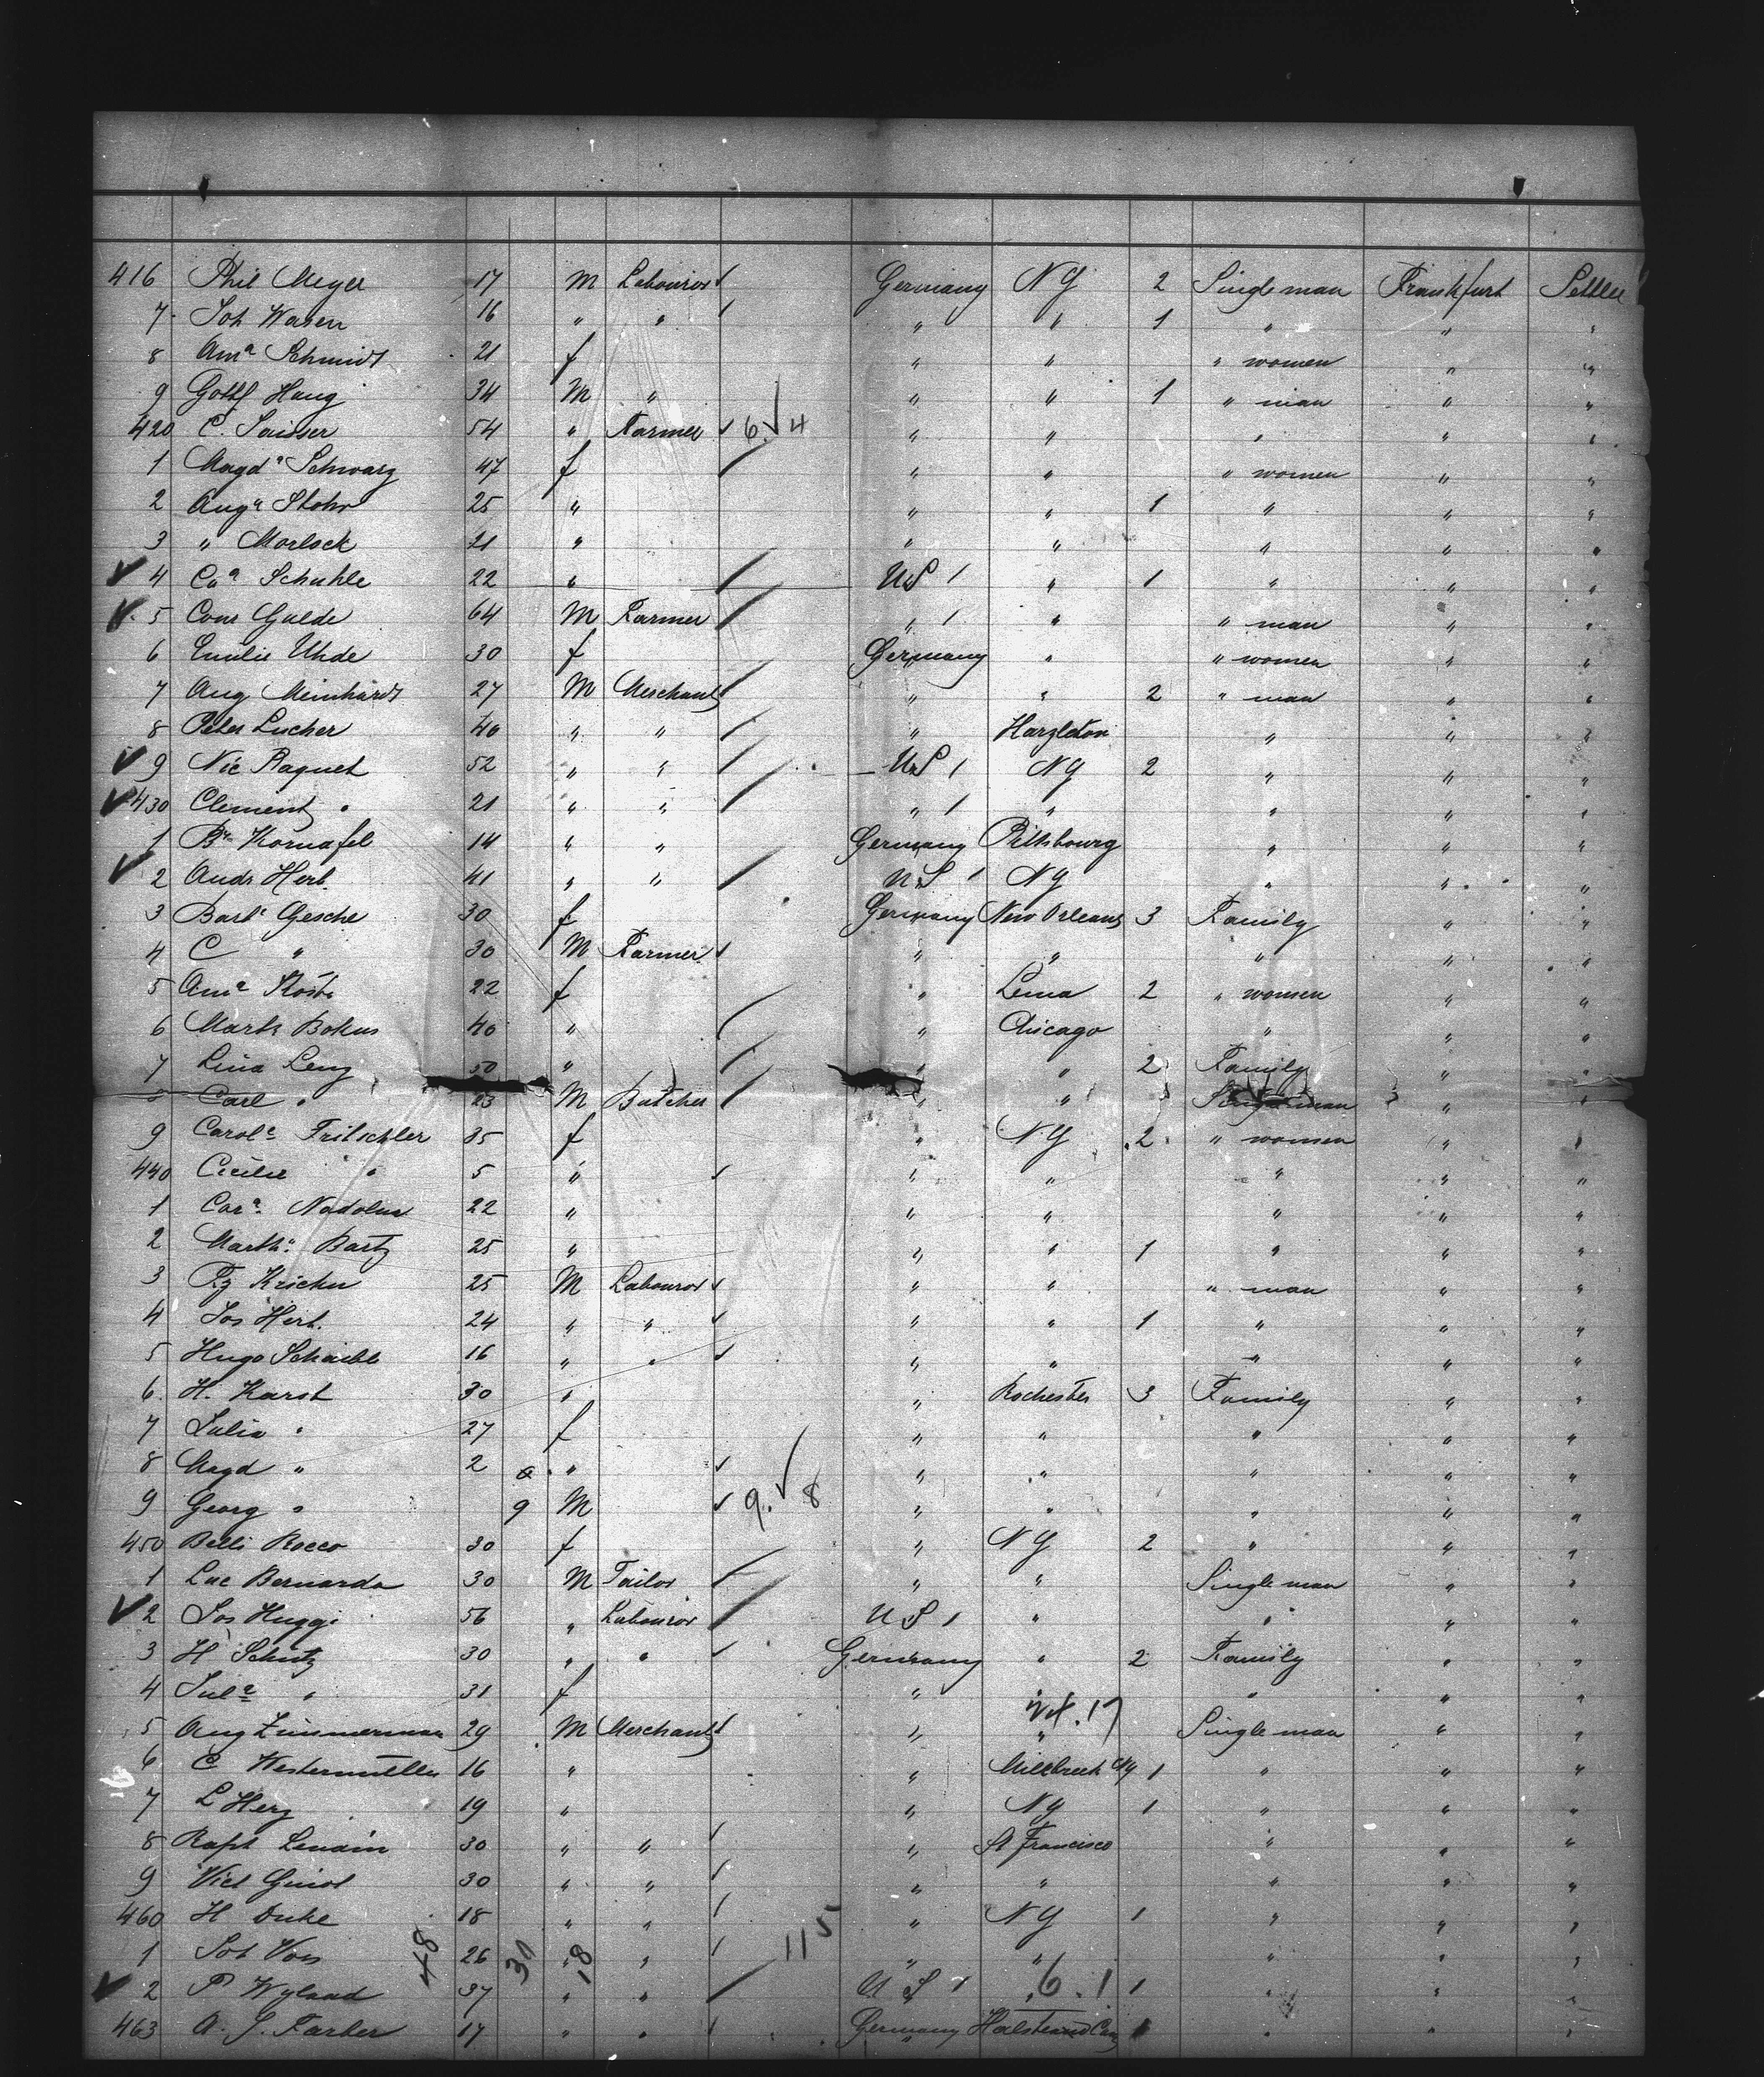 416 Phil Meyer 17 M Labourer Germany NY 2 Single man Frankfurt Settler
7 Joh Wasen 16 " " " " 1 " " "
8 Ama Schmidt 21 f " " " women " "
9 Gottf Haug 34 M " " " 1 " man " "
420 C. Saisser 54 " Farmer 6 4 " " " " "
1 Magda Schwarz 47 f " " " women " "
2 Auga Stohr 25 " " " 1 " " "
3 " Morlock 21 " " " " " "
4 Ca Schuhle 22 " US " 1 " " "
5 Conr Gulde 64 M Farmer " " " man " "
6 Emilie Uhde 30 f Germany " " women " "
7 Aug Meinhardt 27 M Merchant " " 2 " man " "
8 Peter Lucher 40 " " " Hazleton " " "
9 Nic Paquet 52 " " US NY 2 " " "
430 Clement " 21 " " " " " " "
1 Kornafel 14 " " Germany Pittsbourg " " "
2 Andr Herb. 41 " " US NY " " "
3 Barb Gesche 30 f Germany New Orleans 3 Family " "
4 C " 30 M Farmer " " " " "
5 Ama 22 f " Lima 2 " women " "
6 Marth Bokus 40 " " Chicago " " "
7 Lina Leng 50 " " " 2 Family " "
8 Carl " 23 M Butcher " " Single man " "
9 Carole Fritschler 35 f " NY 2 " women " "
440 Cecilie " 5 " " " " " "
1 Cara Nadolna 22 " " " " " "
2 Martha Bartz 25 " " " 1 " " "
3 Fz Krichu 25 M Labourer " " " man " "
4 Jos Herb. 24 " " " " 1 " " "
5 Hugo Schaible 16 " " " " " " "
6. H. Karst 30 " " Rochester 3 Family " "
7 Julia " 27 f " " " " "
8 Magd " 2 " " " " " "
9 Georg " 9 M 9. 8 " " " " "
450 Belli Rocco 30 f " NY 2 " " "
1 Luc Bernarda 30 M Tailor " " Single man " "
2 Jos Huggi 56 " Labourer US " " " "
3 H Schutz 30 " " Germany " 2 Family " "
4 Jula " 31 f " " " " "
5 Aug Zimmerman 29 M Merchant " " Single man " "
6 C Westermuller 16 " " NY 1 " " "
7 L Herz 19 " " NY 1 " " "
8 Raph 30 " " " St Francisco " " "
9 Vict 30 " " " " " " "
460 H Duke 18 " " " NY 1 " " "
1 Joh Voss 26 " " " " " " "
2 P Wyland 37 " " US " 1 " " "
463 A. J. Farber 17 " " Germany Halstead " " "
48 30 18 115 6.1